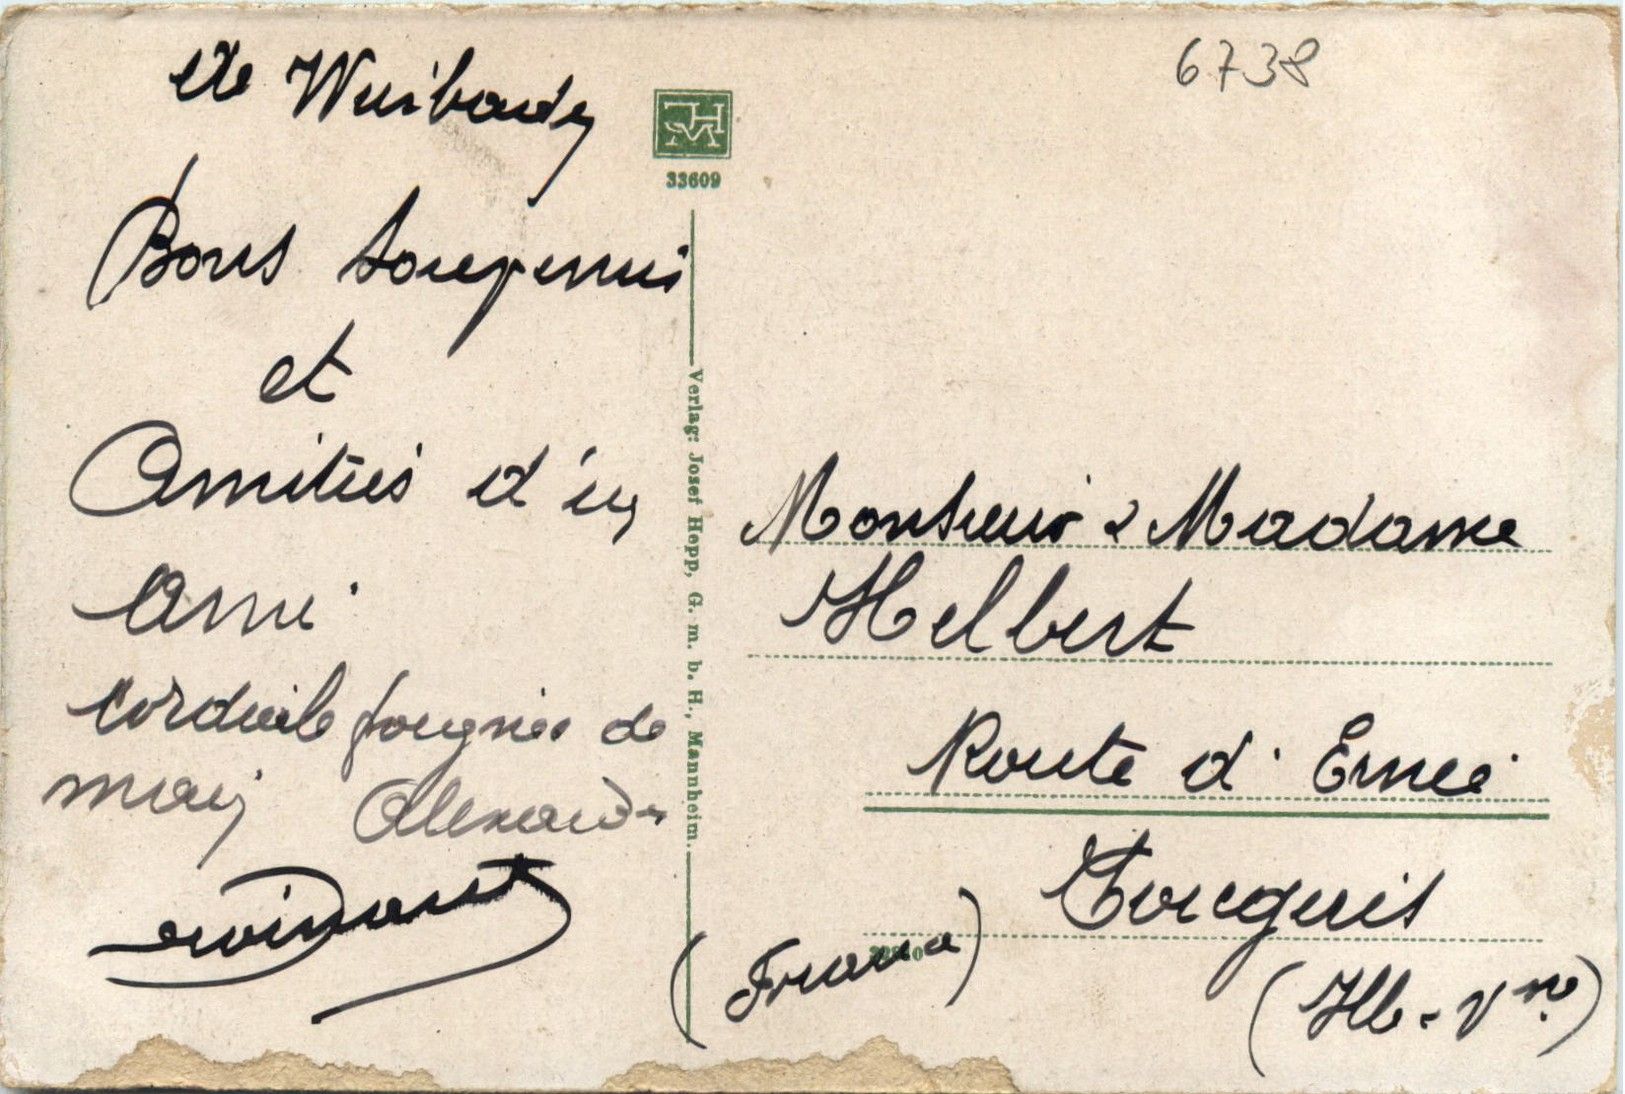 de Wiesbaden
Bons souvenirs
et
Amitiés d'un
Ami
Cordiale poignée de
main Alexandre
6738
HM
33609
Verlag: Josef Hepp, G. m. b. H., Mannheim.
Monsieur & Madame
Helbert
Route d'Ernée
Fougères
(Ille-Vne)
(France)